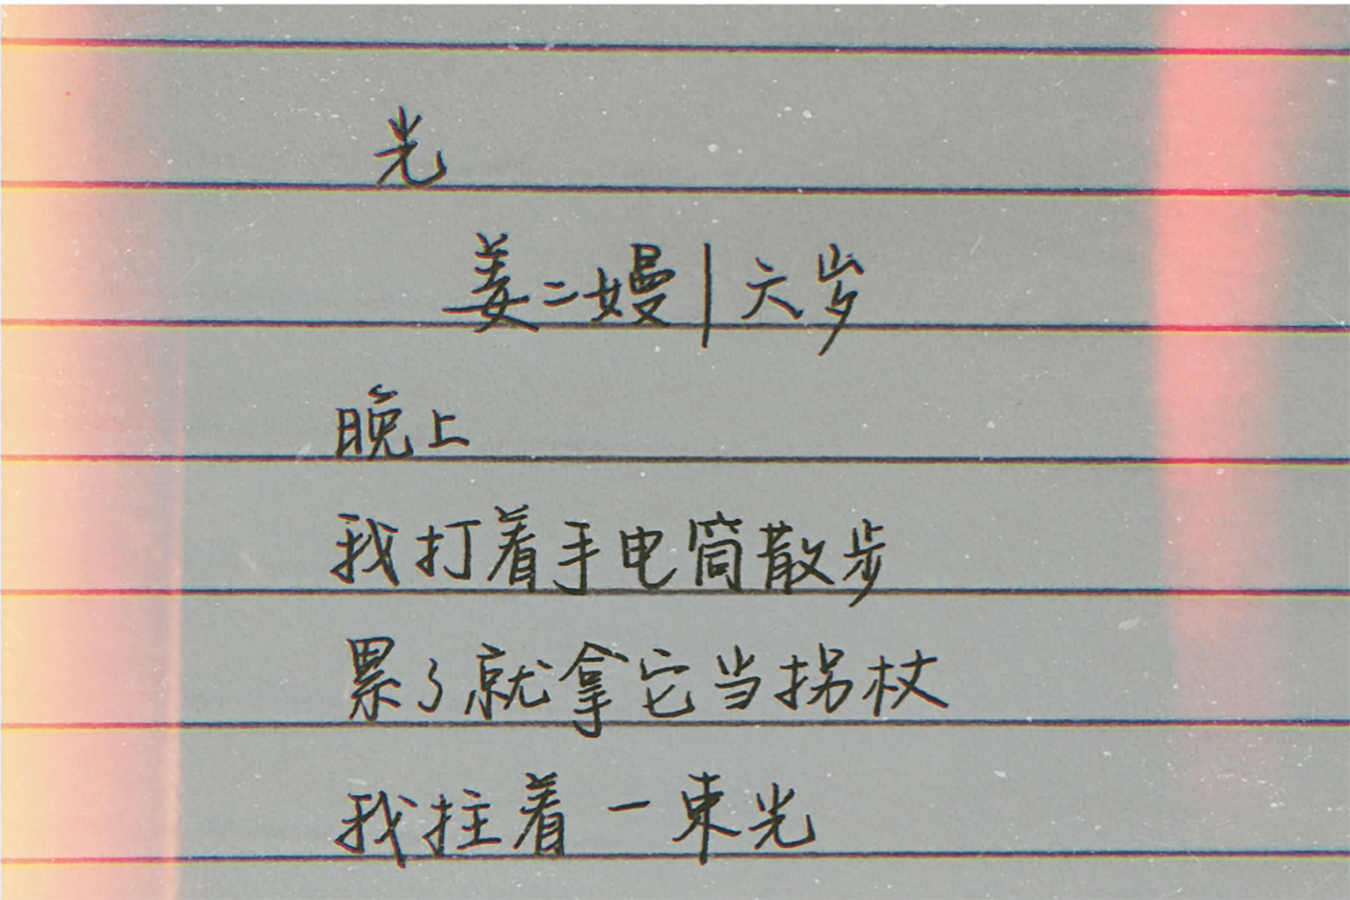 光
姜二嫚|六岁
晚上
我打着手电筒散步
累了就拿它当拐杖
我拄着一束光